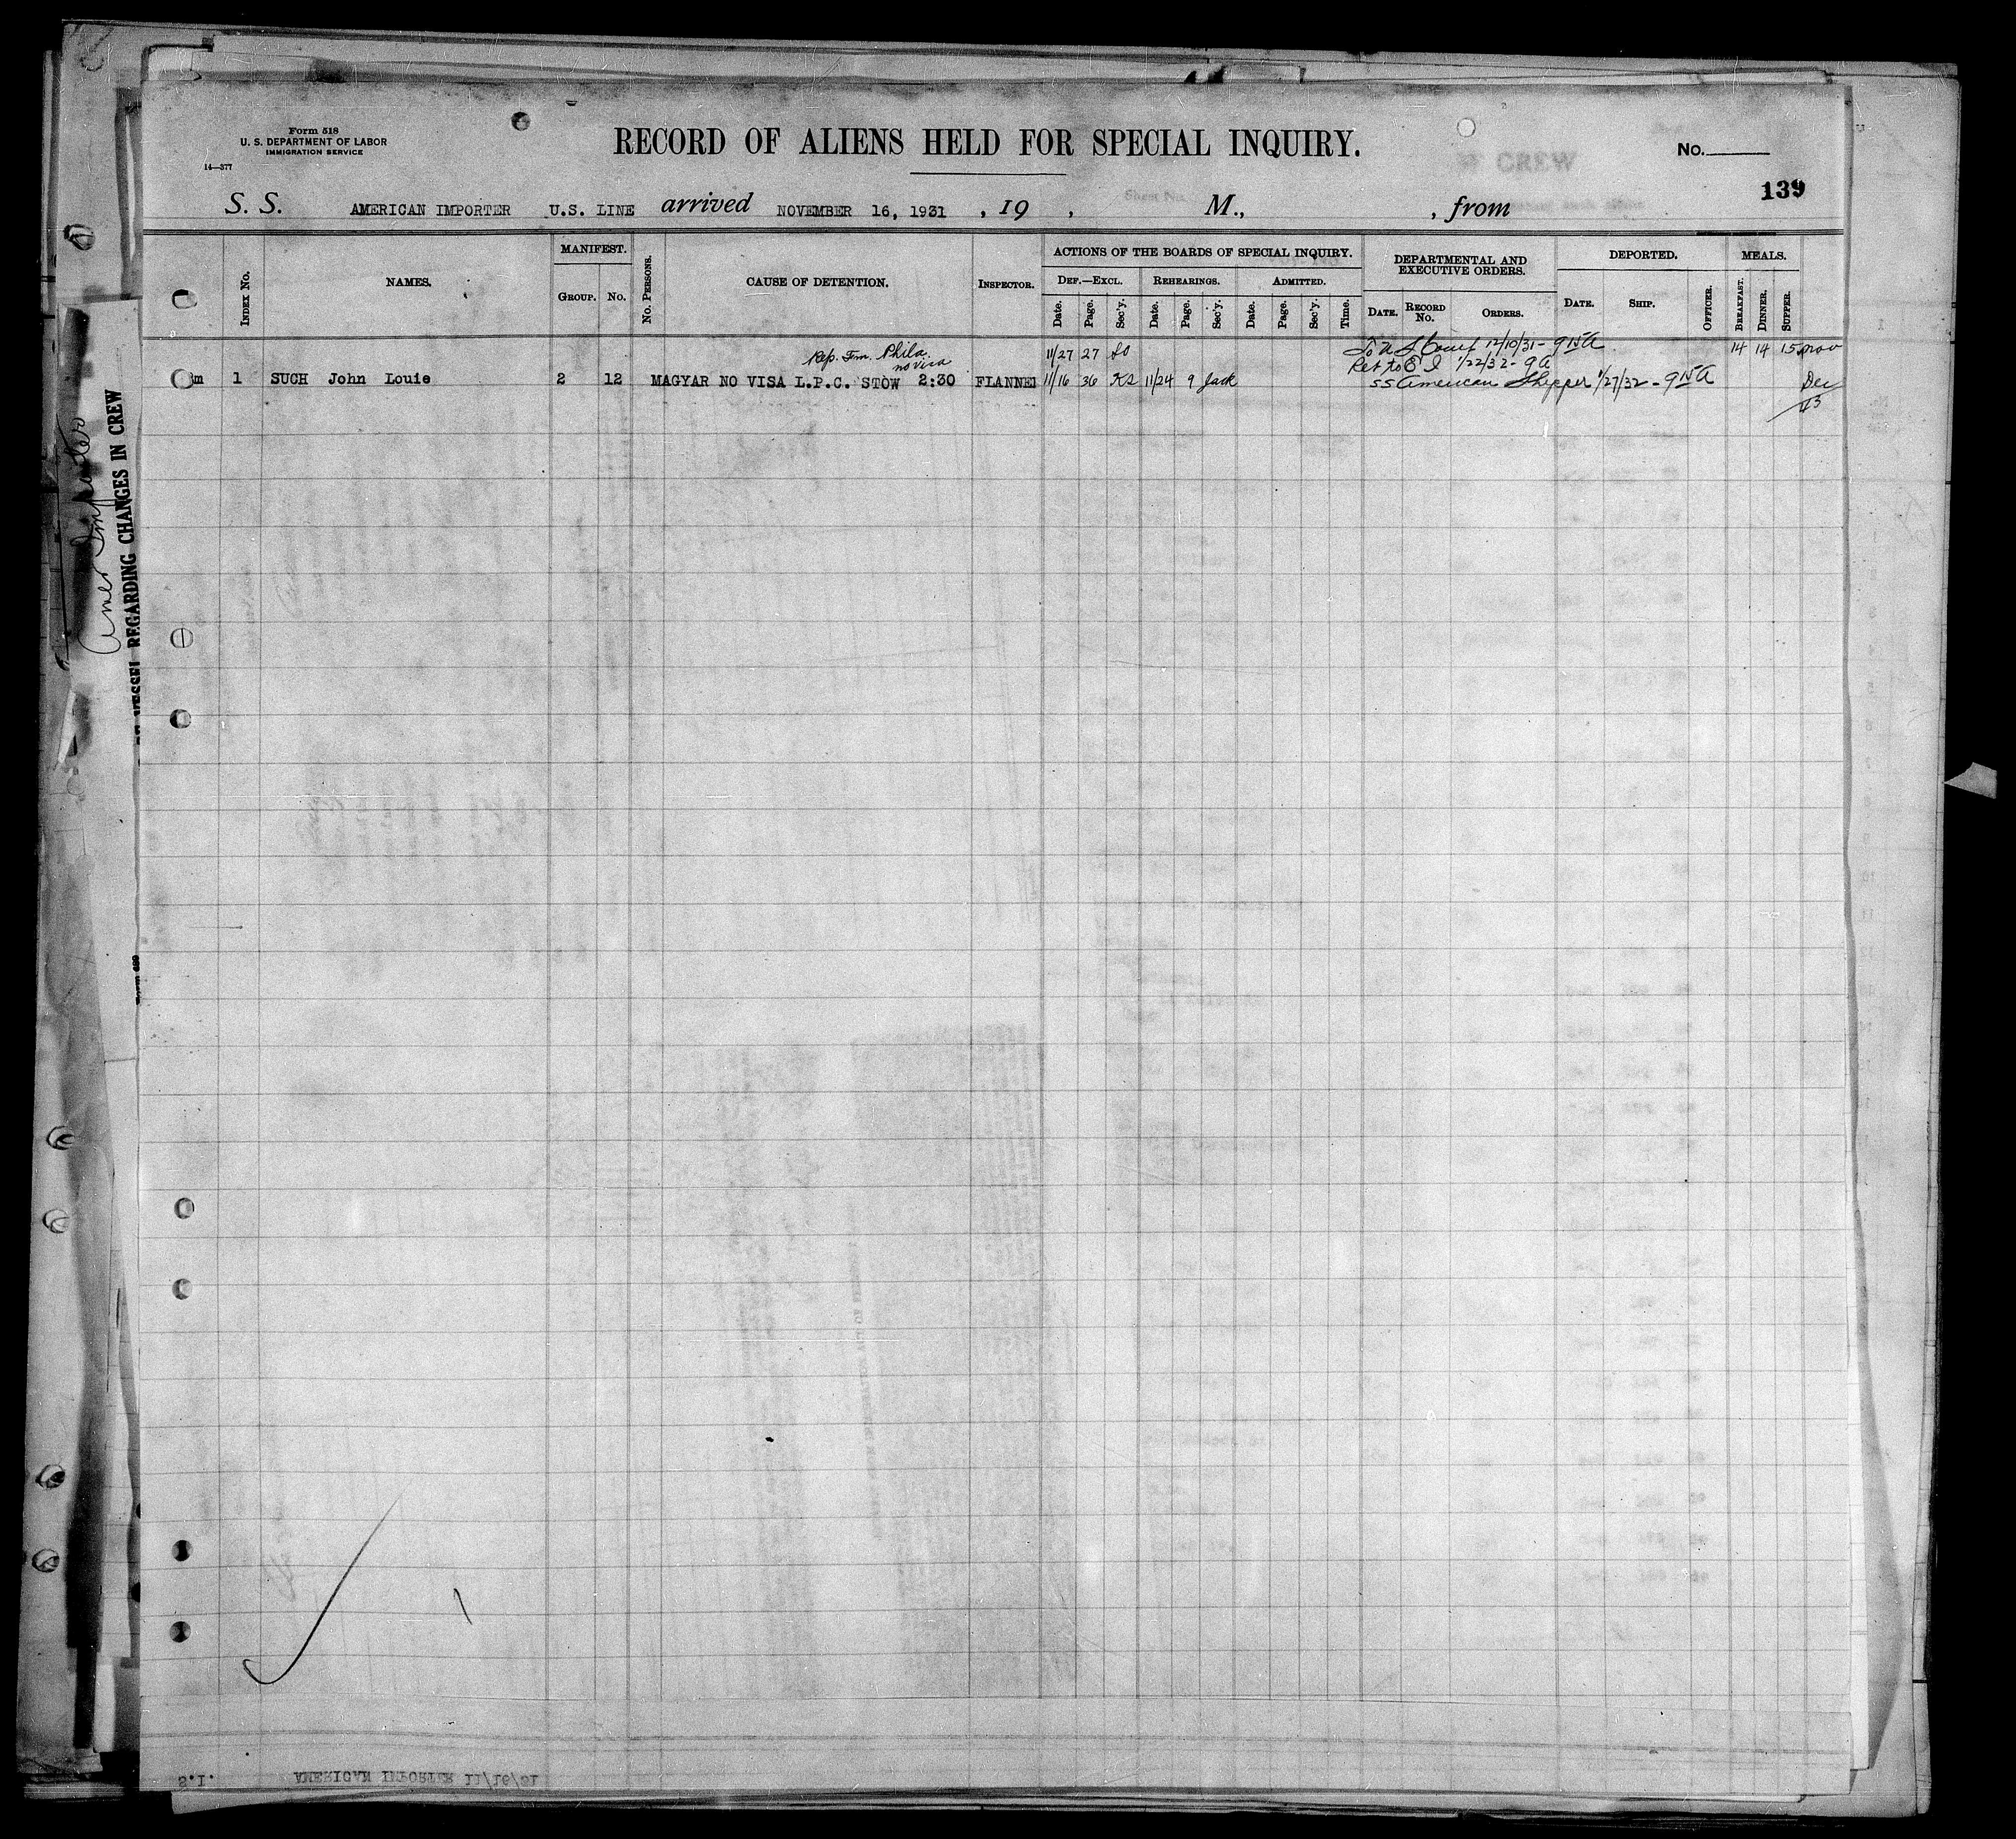 Form 518
U. S. DEPARTMENT OF LABOR
IMMIGRATION SERVICE
14—377
RECORD OF ALIENS HELD FOR SPECIAL INQUIRY.
No.
139
S. S. AMERICAN IMPORTER U.S. LINE arrived NOVEMBER 16, 1931 , 19 , M., , from
INDEX No. NAMES. MANIFEST. GROUP. No. No. PERSONS. CAUSE OF DETENTION. INSPECTOR.
ACTIONS OF THE BOARDS OF SPECIAL INQUIRY. DEF.—EXCL. REHEARINGS. ADMITTED.
Date. Page. Sec'y. Date. Page. Sec'y. Date. Page. Sec'y. Time.
DEPARTMENTAL AND EXECUTIVE ORDERS. DATE. RECORD No. ORDERS.
DEPORTED. DATE. SHIP. OFFICER.
MEALS. BREAKFAST. DINNER. SUPPER.
Rep. Fm. Phila. 11/27 27 So To U S Court 12/10/31 - 9 15 A 14 14 15 Nov
no visa Ret to E I 1/22/32 - 9 A
m 1 SUCH John Louie 2 12 MAGYAR NO VISA L.P.C. STOW 2:30 FLANNE 11/16 36 KS 11/24 9 Jack SS American Shipper 1/27/32 - 9 15 A Dec
43
Amer Importer
VESSEL REGARDING CHANGES IN CREW
CREW
S.I. AMERICAN IMPORTER 11/16/31